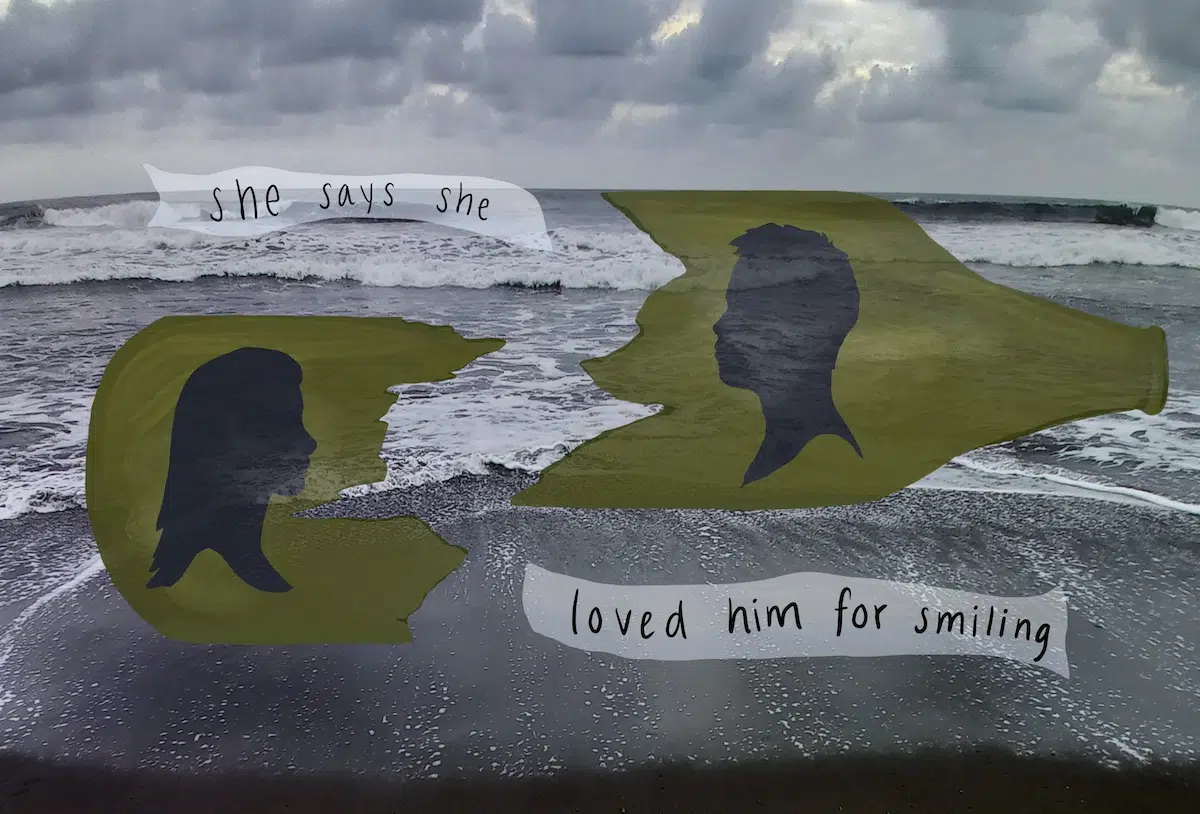 she says she
loved him for smiling